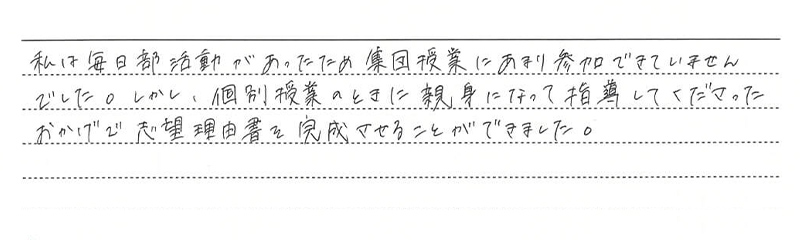 私は毎日部活動があったため集団授業にあまり参加できていません
でした。しかし、個別授業のときに親身になって指導してくださった
おかげで志望理由書を完成させることができました。